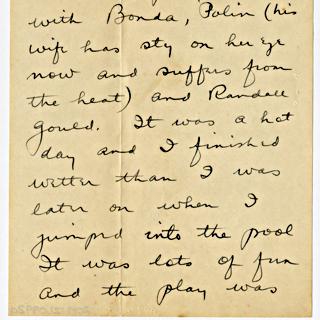 with Bonda, Polin (his
wife has sty on her eye
now and suffers from
the heat) and Randall
Gould. It was a hot
day and I finished
wetter than I was
later on when I
jumped into the pool
It was lots of fun
and the play was